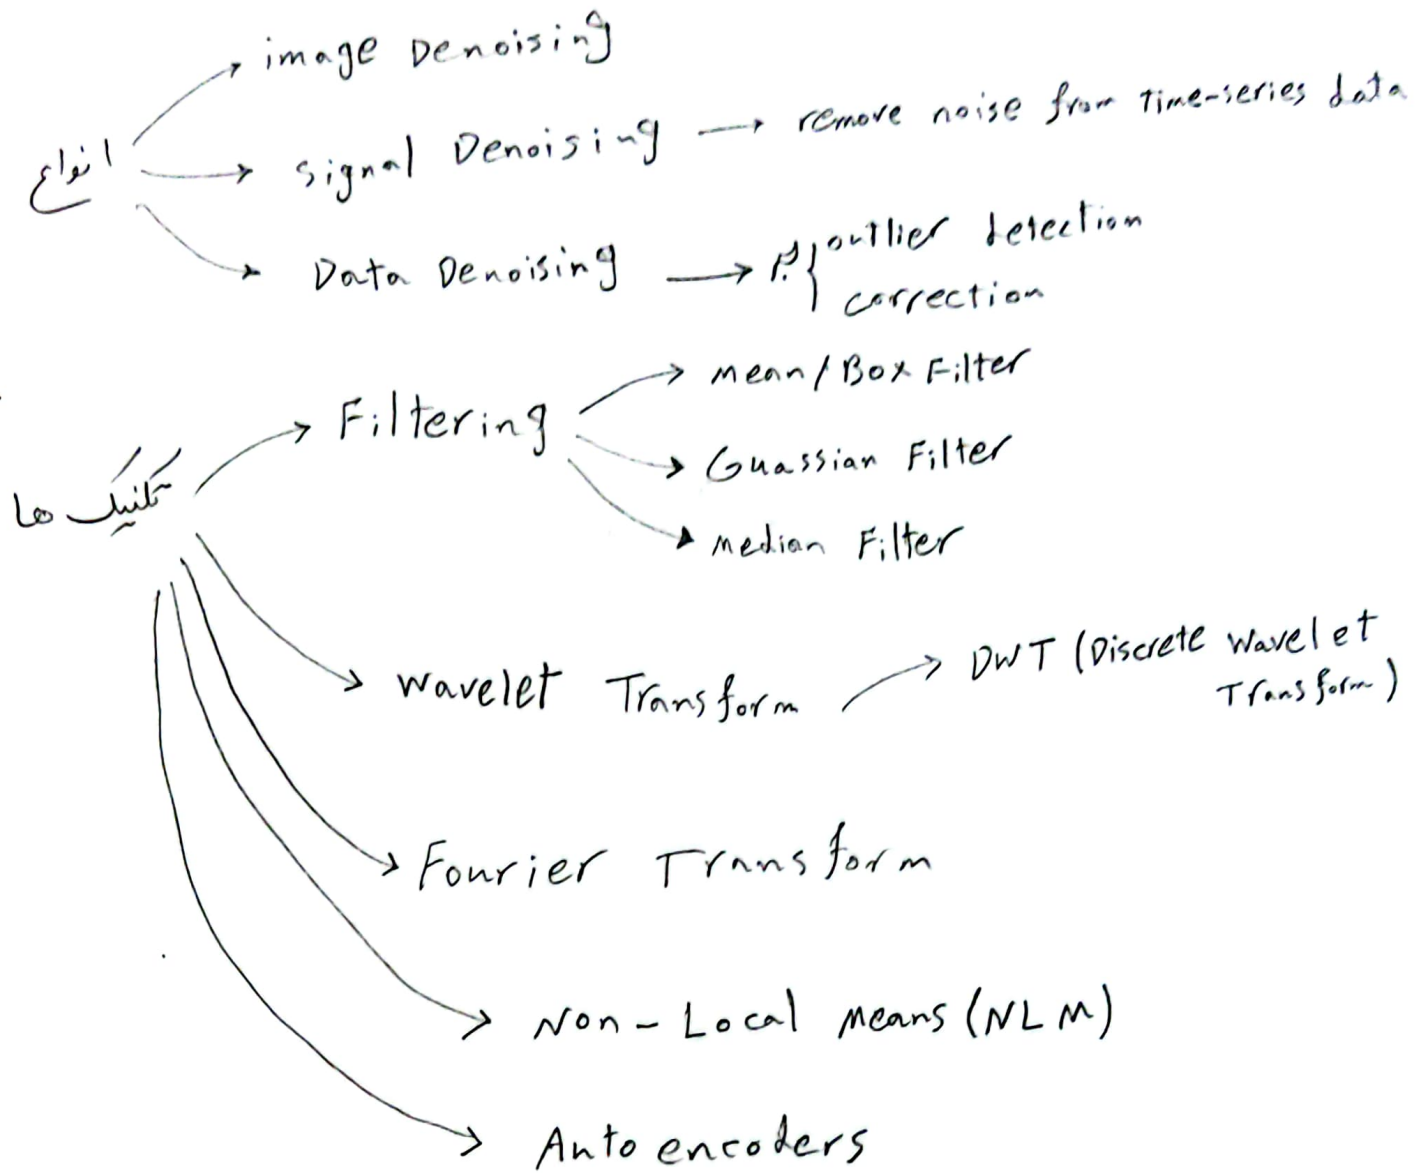 انواع
image Denoising
Signal Denoising → remove noise from Time-series data
Data Denoising → outlier detection
correction
تکنیک ها
Filtering
mean/Box Filter
Guassian Filter
median Filter
Wavelet Transform
DWT (Discrete Wavelet
Transform)
Fourier Transform
Non-Local Means (NLM)
Autoencoders